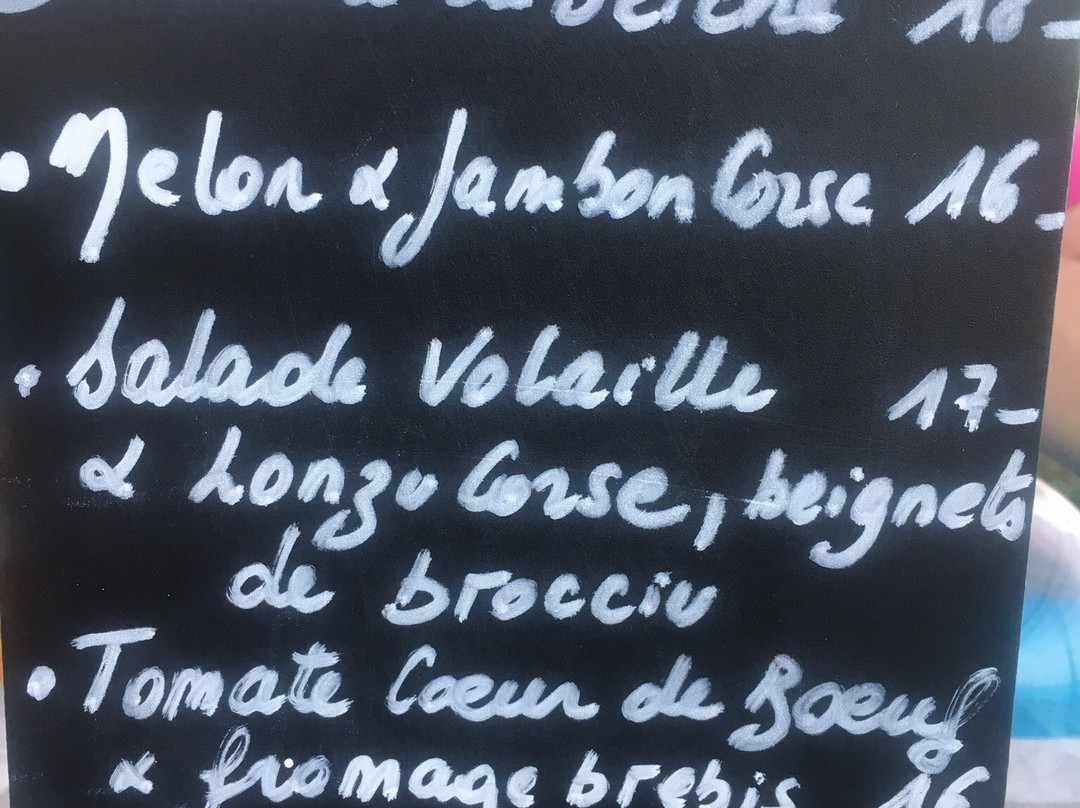 18_
• Melon & Jambon Corse 16_
• Salade Volaille 17_
& Lonzu Corse, beignets
de brocciu
• Tomate Coeur de Boeuf
& fromage brebis 16